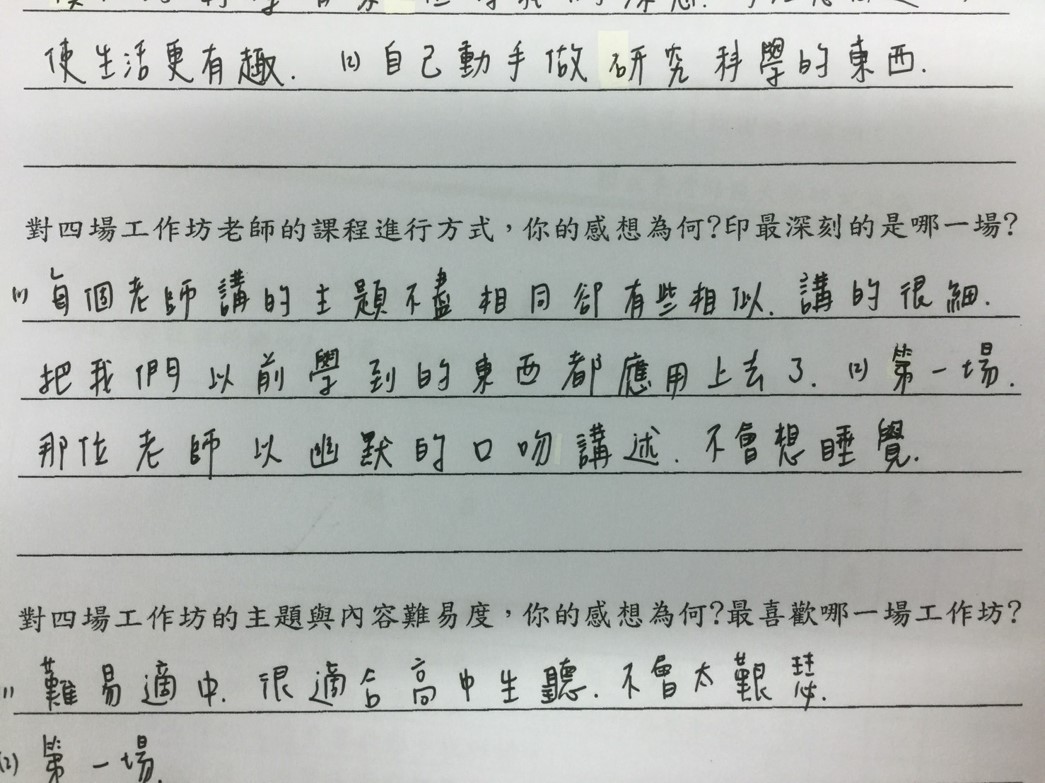 使生活更有趣. (2) 自己動手做研究科學的東西.
對四場工作坊老師的課程進行方式，你的感想為何?印最深刻的是哪一場?
(1) 每個老師講的主題不盡相同卻有些相似. 講的很細.
把我們以前學到的東西都應用上去了. (2) 第一場.
那位老師以幽默的口吻講述. 不會想睡覺.
對四場工作坊的主題與內容難易度，你的感想為何?最喜歡哪一場工作坊?
(1) 難易適中. 很適合高中生聽. 不會太艱
(2) 第一場.